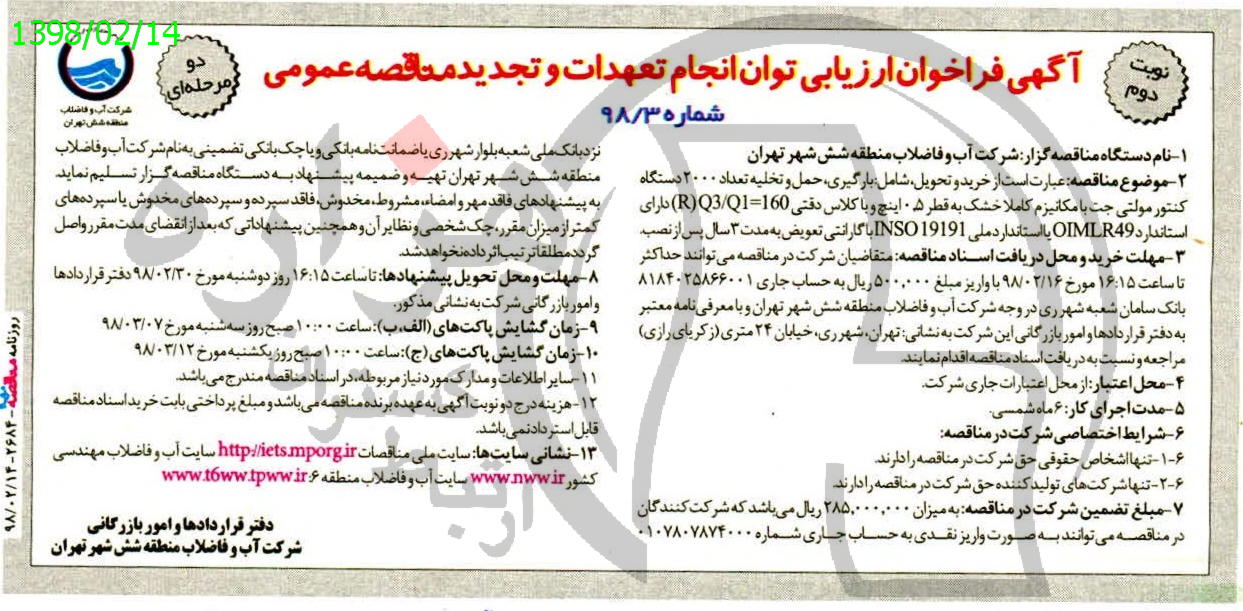 1398/02/14
نوبت
دوم
آگهی فراخوان ارزیابی توان انجام تعهدات و تجدید مناقصه عمومی
شماره ۹۸/۳
دو
مرحله‌ای
شرکت آب و فاضلاب
منطقه شش تهران
۱-نام دستگاه مناقصه گزار: شرکت آب و فاضلاب منطقه شش شهر تهران
۲-موضوع مناقصه: عبارت است از خرید و تحویل، شامل: بارگیری، حمل و تخلیه تعداد ۲۰۰۰ دستگاه
کنتور مولتی جت با مکانیزم کاملا خشک به قطر ۰.۵ اینچ و با کلاس دقتی R) Q3/Q1=160) دارای
استاندارد OIMLR49 یا استاندارد ملی INSO 19191 با گارانتی تعویض به مدت ۳ سال پس از نصب.
۳-مهلت خرید و محل دریافت اسناد مناقصه: متقاضیان شرکت در مناقصه می‌توانند حداکثر
تا ساعت ۱۶:۱۵ مورخ ۹۸/۰۲/۱۶ با واریز مبلغ ۵۰۰,۰۰۰ ریال به حساب جاری ۸۱۸۴۰۲۵۸۶۶۰۰۱
بانک سامان شعبه شهر ری در وجه شرکت آب و فاضلاب منطقه شش شهر تهران و با معرفی نامه معتبر
به دفتر قراردادها و امور بازرگانی این شرکت به نشانی: تهران، شهر ری، خیابان ۲۴ متری (زکریای رازی)
مراجعه و نسبت به دریافت اسناد مناقصه اقدام نمایند.
۴-محل اعتبار: از محل اعتبارات جاری شرکت.
۵-مدت اجرای کار: ۶ ماه شمسی.
۶-شرایط اختصاصی شرکت در مناقصه:
۶-۱-تنها اشخاص حقوقی حق شرکت در مناقصه را دارند.
۶-۲-تنها شرکت‌های تولید کننده حق شرکت در مناقصه را دارند.
۷-مبلغ تضمین شرکت در مناقصه: به میزان ۲۸۵,۰۰۰,۰۰۰ ریال می‌باشد که شرکت کنندگان
در مناقصه می‌توانند به صورت واریز نقدی به حساب جاری شماره ۰۱۰۷۸۰۷۸۷۴۰۰۰
نزد بانک ملی شعبه بلوار شهر ری یا ضمانت نامه بانکی و یا چک بانکی تضمینی به نام شرکت آب و فاضلاب
منطقه شش شهر تهران تهیه و ضمیمه پیشنهاد به دستگاه مناقصه گزار تسلیم نماید.
به پیشنهادهای فاقد مهر و امضاء، مشروط، مخدوش، فاقد سپرده و سپرده‌های مخدوش یا سپرده‌های
کمتر از میزان مقرر، چک شخصی و نظایر آن و همچنین پیشنهاداتی که بعد از انقضای مدت مقرر واصل
گردد مطلقا ترتیب اثر داده نخواهد شد.
۸-مهلت و محل تحویل پیشنهادها: تا ساعت ۱۶:۱۵ روز دوشنبه مورخ ۹۸/۰۲/۳۰ دفتر قراردادها
و امور بازرگانی شرکت به نشانی مذکور.
۹-زمان گشایش پاکت‌های (الف، ب): ساعت ۱۰:۰۰ صبح روز سه شنبه مورخ ۹۸/۰۳/۰۷
۱۰-زمان گشایش پاکت‌های (ج): ساعت ۱۰:۰۰ صبح روز یکشنبه مورخ ۹۸/۰۳/۱۲
۱۱-سایر اطلاعات و مدارک مورد نیاز مربوطه، در اسناد مناقصه مندرج می‌باشد.
۱۲-هزینه درج دو نوبت آگهی به عهده برنده مناقصه می‌باشد و مبلغ پرداختی بابت خرید اسناد مناقصه
قابل استرداد نمی‌باشد.
۱۳-نشانی سایت‌ها: سایت ملی مناقصات http://iets.mporg.ir سایت آب و فاضلاب مهندسی
کشور www.nww.ir سایت آب و فاضلاب منطقه ۶: www.t6ww.tpww.ir
دفتر قراردادها و امور بازرگانی
شرکت آب و فاضلاب منطقه شش شهر تهران
روزنامه مناقصه ۲۶۸۴-۹۸/۰۲/۱۴